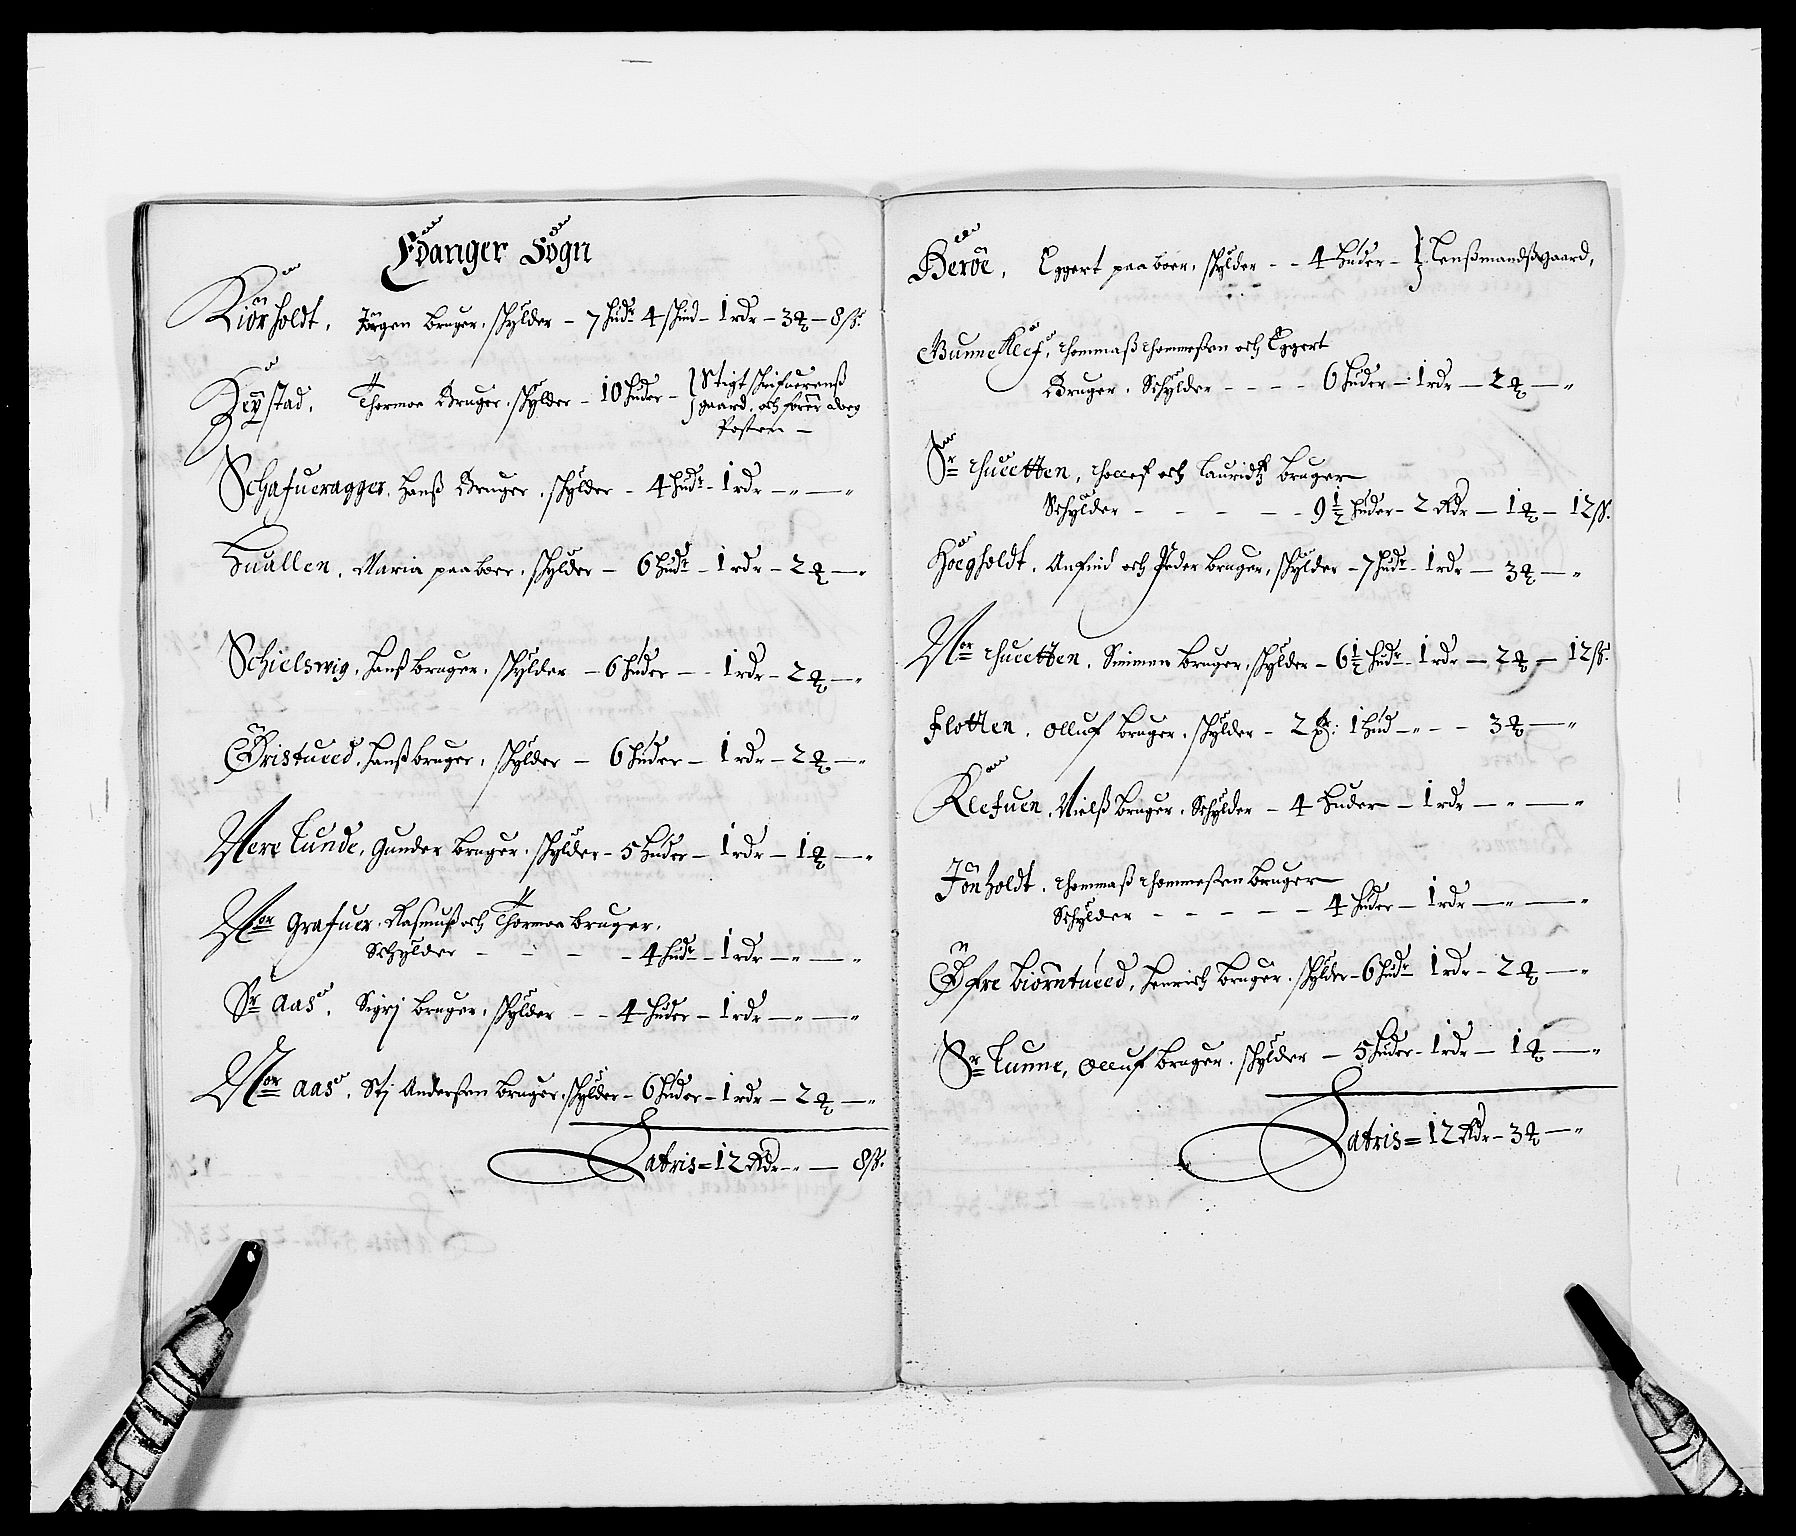 Edanger Sogn
Kiörholdt, Jörgen bruger, schylder – 7 hudr 4 schind – 1 rdr – 3 ꝗ – 8 ß.
Heystad, Thormoe Bruger, schylder – 10 huder – Stigt schrifuerenß
gaard, och förer
Posten –
Schafueragger, Hanß Bruger, schylder – 4 hudr – 1 rdr – „ – „
Huallen, Maria paaboer, schylder – 6 hudr – 1 rdr – 2 ꝗ – „
Schielswig, Hanß bruger, schylder – 6 huder – 1 rdr – 2 ꝗ – „
Öristueed, Hanß bruger, schylder – 6 huder – 1 rdr – 2 ꝗ – „
Nere Lunde, Gunder bruger, schylder – 5 huder – 1 rdr – 1 ꝗ – „
Nor Grafuer, Rasmuß och Thormoe bruger,
Schylder – – – – 4 hudr – 1 rdr – „ – „
Sr Aas, Sigrj bruger, schylder – – 4 huder – 1 rdr – „ – „
Nor Aas, Stj Anderßen bruger, schylder – 6 huder – 1 rdr – 2 ꝗ – „
Latris = 12 Rdr – „ – 8 ß.
Beröe, Eggert paaboer, schylder – – 4 huder – Lenßmandßgaard,
Bunneklef, Thommaß Thommeßen och Eggert
Bruger, Schylder – – – – 6 huder – 1 rdr – 2 ꝗ – „
Sr Thueetten, Thollef och Lauridtz bruger
Schylder – – – – – 9 1/2 huder – 2 Rdr – 1 ꝗ – 12 ß.
Höegholdt, Anfind och Peder bruger, schylder – 7 hudr – 1 rdr – 3 ꝗ – „
Nor Thueetten, Simmen bruger, schylder – 6 1/2 hudr – 1 rdr – 2 ꝗ – 12 ß.
Flotten, Olluf bruger, schylder – 2 : 1 hud – „ – – 3 ꝗ – „
Klefuen, Nielß bruger, Schylder – 4 huder – 1 rdr – „ – „
Jönholdt, Thommaß Thommeßen bruger
Schylder – – – – – 4 huder – 1 rdr – „ – „
Öfre Biörntueed, Henrich bruger, schylder – 6 hudr 1 rdr – 2 ꝗ – „
Sr Lunne, Olluf bruger, schylder – 5 huder – 1 rdr – 1 ꝗ – „
Latris = 12 Rdr – 3 ꝗ – „